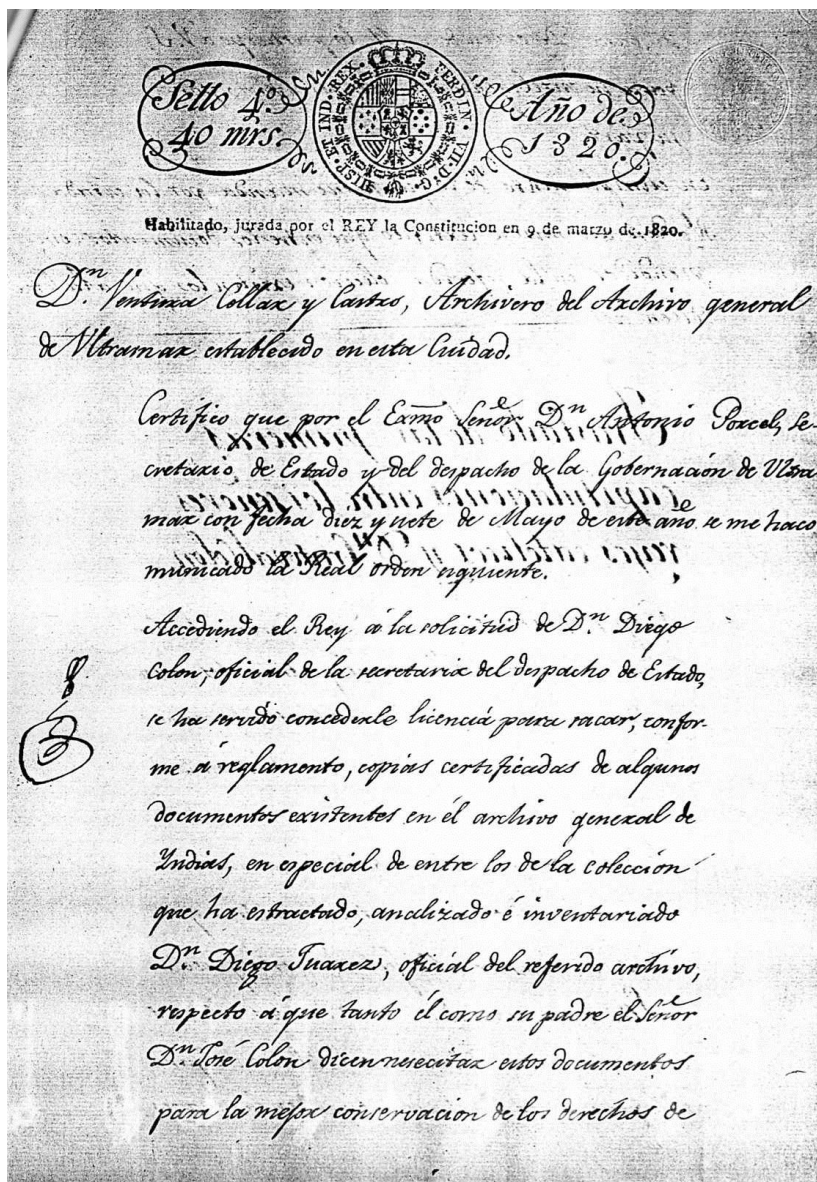 Sello 4º
40 mrs.
HISP. ET IND. REX. FERDIN. VII. D. G.
Año de
1820.
Habilitado, jurada por el REY la Constitucion en 9 de marzo de 1820.
Dn. Ventura Collar y Castro, Archivero del Archivo general
de Ultramar establecido en esta Ciudad.
Certifico que por el Exmo Señor Dn Antonio Porcel, Se-
cretario de Estado y del despacho de la Gobernacion de Ultra
mar con fecha diez y siete de Mayo de este año se me ha co
municado la Real orden siguiente.
Accediendo el Rey á la solicitud de Dn. Diego
Colon, oficial de la secretaria del despacho de Estado,
se ha servido concederle licencia para sacar, confor-
me á reglamento, copias certificadas de algunos
documentos existentes en él archivo general de
Yndias, en especial de entre los de la colección
que ha estractado, analizado é inventariado
Dn. Diego Juarez, oficial del referido archivo,
respecto á que tanto él como su padre el Señor
Dn. José Colon dicen nesecitar estos documentos
para la mejor conservacion de los derechos de